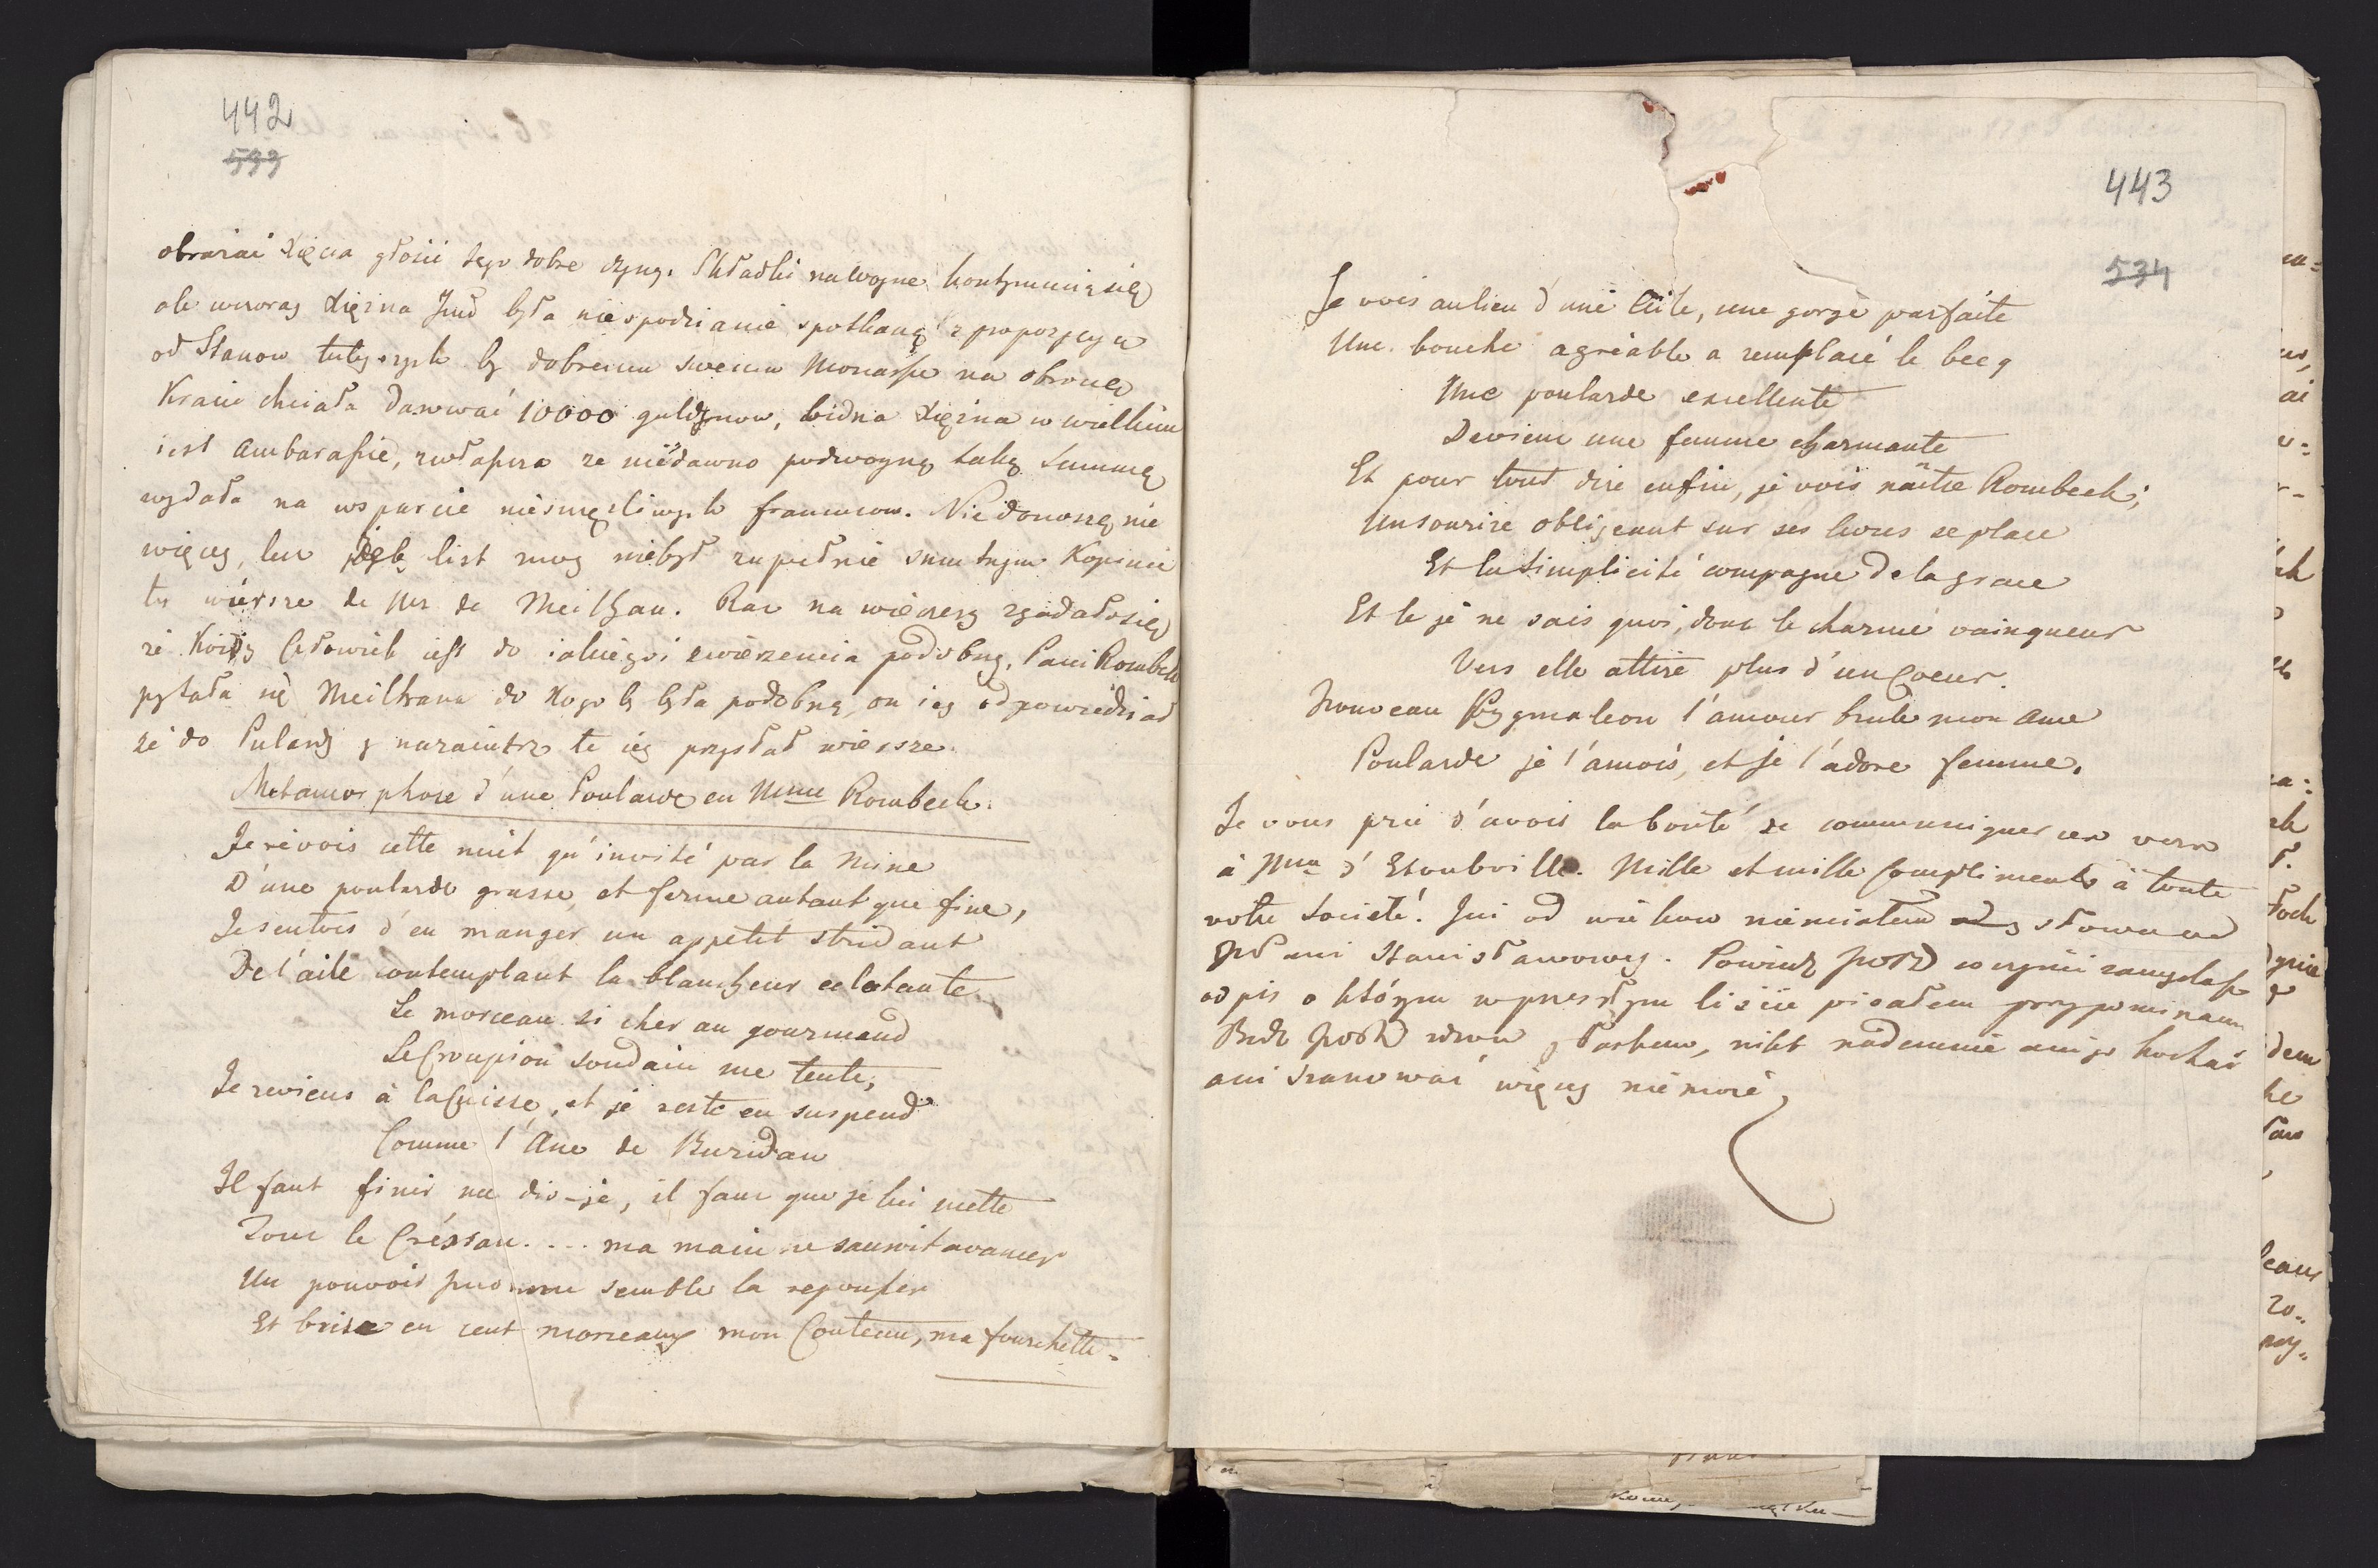 442
533
obrazai Xięcia głosić tego dobre czyny. Składki na Woynę kontynuuią się
ale wczoray Xiężna Jmć była niespodzianie spotkaną z propozycyą
od Stanow tuteyszych by dobremu swemu Monarsze na obronę
Kraiu chciała darować 10000 guldynow, bidna Xiężna w wielkim
iest ambarasie, zwłaszcza ze niedawno podwoyną taką summę
wydała na wsparcie nieszczęśliwych francuzow. Nie donoszę nic
więcey, lecz żeby list moy niebył zupełnie smutnym Kopiuie
tu wiersze de Mr de Meilhan. Raz na wieczerzy zgadało się
że Kożdy Człowiek iest do iakiegoś zwierzencia podobny. Pani Rombek
pytała się Meilhana do Kogo by była podobną, on iey odpowiedział
że do Pulardy y nazaiutrz te iey przysłał wiersze.
Metamorphose d'une Poularde en Mme Rombeck.
Je revois cette nuit qu'invité par la Mine
D'une poularde grasse, et ferme autant que fine,
Je sentois d'en manger un appetit stridant
De l'aile contemplant la blancheur eclatante
Le morceau si cher au gourmand
Le Croupion soudain me tente;
Je reviens à la Cuisse, et je reste en suspend
Comme l'Ane de Buridan
Il faut finir me dis-je, il faut que je lui mette
Tout le Cresson.... ma main ne sauroit avancer
Un pouvoir inconnu semble la repousser
Et brise en cent morceaux mon Couteau, ma fourchette.
443
534
Je vois au lieu d'une aile, une gorge parfaite
Une bouche agréable a remplacé le becq
Une poularde excellente
Devient une femme charmante
Et pour tout dire enfin, je vois naitre Rombeck;
Un sourire obligeant sur ses levres se place
Et la simplicité compagne de la grace
Et le je ne sais quoi, dont le charme vainqueur
Vers elle attire plus d'un Coeur.
Nouveau Pygmaleon l'amour brule mon ame
Poularde je l'amois, et je l'adore femme.
Je vous prie d'avoir la bonté de communiquer ces vers
à Mme d'Estouville. Mille et mille Compliments à toute
votre Societé. Jui od wiekow niemiałem słowa od
Pani Stanisławowey. Powiedz co czynić zamyślasz
odpis o którym w przeszłym liście pisałem przypominam
Bądz zdrow y łaskaw, nikt nademnie ani go kochać
ani szanować więcey nie może